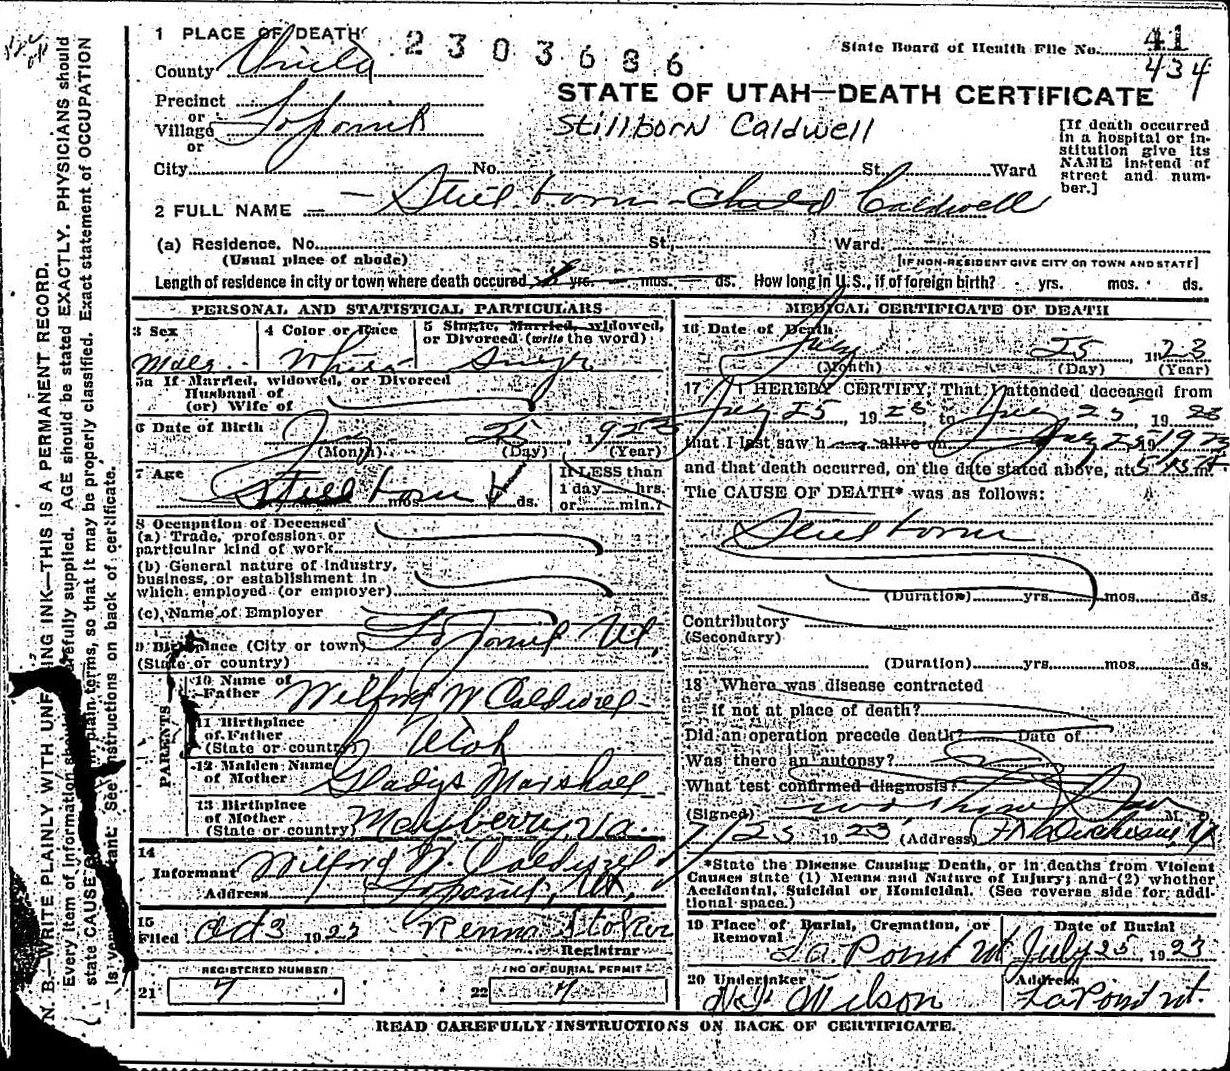 1 PLACE OF DEATH
2303686
State Board of Health File No. 41
434
County
STATE OF UTAH—DEATH CERTIFICATE
Precinct
or
Village
or
Stillborn Caldwell
[If death occurred
in a hospital or in-
stitution give its
NAME instead of
street and num-
ber.]
City No. St. Ward
2 FULL NAME — Still born child Caldwell
(a) Residence. No. St., Ward.
(Usual place of abode) [IF NON-RESIDENT GIVE CITY OR TOWN AND STATE]
Length of residence in city or town where death occured yrs. mos. ds. How long in U.S., if of foreign birth? yrs. mos. ds.
PERSONAL AND STATISTICAL PARTICULARS
3 Sex 4 Color or Race 5 Single, Married, widowed,
or Divorced (write the word)
Male White Single
5a If Married, widowed, or Divorced
Husband of
(or) Wife of
6 Date of Birth July 25, 1923
(Month) (Day) (Year)
7 Age Still born mos. ds. If LESS than
1 day hrs.
or min.?
8 Occupation of Deceased
(a) Trade, profession or
particular kind of work
(b) General nature of Industry,
business, or establishment in
which employed (or employer)
(c) Name of Employer
9 Birthplace (City or town)
(State or country)
PARENTS
10 Name of
Father Wilford W Caldwell
11 Birthplace
of Father
(State or country) Utah
12 Maiden Name
of Mother Gladys Marshall
13 Birthplace
of Mother
(State or country) Mayberry, Va
14
Informant Wilford W. Caldwell
Address
15
Filed Oct 3 1923
Registrar
REGISTERED NUMBER NO OF BURIAL PERMIT
21 7 22 7
MEDICAL CERTIFICATE OF DEATH
16 Date of Death
July 25, 1923
(Month) (Day) (Year)
17 I HEREBY CERTIFY, That I attended deceased from
July 25, 1923 to July 25, 1923
that I last saw h alive on July 25 1923
and that death occurred, on the date stated above, at m.
The CAUSE OF DEATH* was as follows:
Still born
(Duration) yrs. mos. ds.
Contributory
(Secondary)
(Duration) yrs. mos. ds.
18 Where was disease contracted
if not at place of death?
Did an operation precede death? Date of
Was there an autopsy?
What test confirmed diagnosis?
(Signed) M. D.
7/25 1923 (Address)
*State the Disease Causing Death, or in deaths from Violent
Causes state (1) Means and Nature of Injury; and (2) whether
Accidental, Suicidal or Homicidal. (See reverse side for addi-
tional space.)
19 Place of Burial, Cremation, or Date of Burial
Removal La Point ut July 25, 1923
20 Undertaker Address
Wilson La Point ut.
READ CAREFULLY INSTRUCTIONS ON BACK OF CERTIFICATE.
N. B.—WRITE PLAINLY WITH UNFADING INK—THIS IS A PERMANENT RECORD.
Every item of information should be carefully supplied. AGE should be stated EXACTLY. PHYSICIANS should
state CAUSE in plain terms, so that it may be properly classified. Exact statement of OCCUPATION
is very important. See instructions on back of certificate.